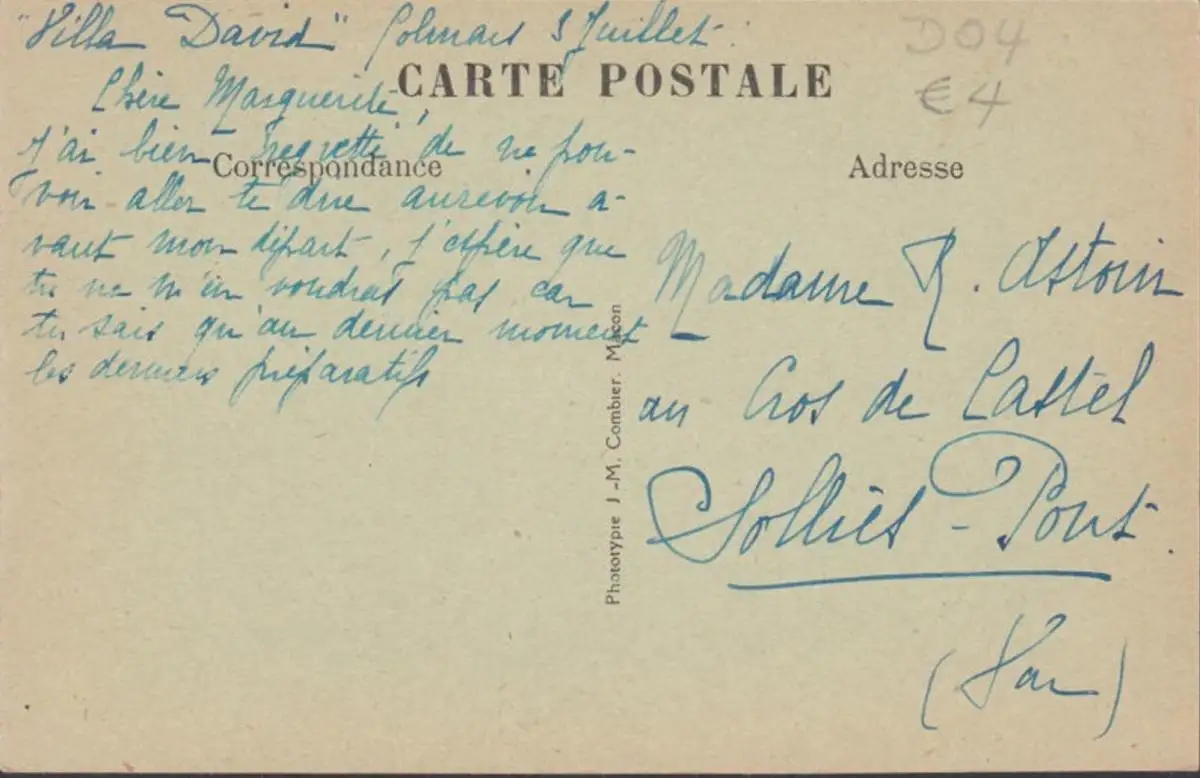 "Villa "David" Colmars 8 Juillet.
D04
€4
CARTE POSTALE
Chère Marguerite,
Correspondance
Adresse
J'ai bien regretté de ne pou-
voir aller te dire aurevoir a-
vant mon départ, j'espère que
tu ne m'en voudras pas car
tu sais qu'au dernier moment
les derniers préparatifs
Madame R. Astoin
au Cros de Castel
Solliès-Pont.
(Var)
Phototypie J.-M. Combier. Macon